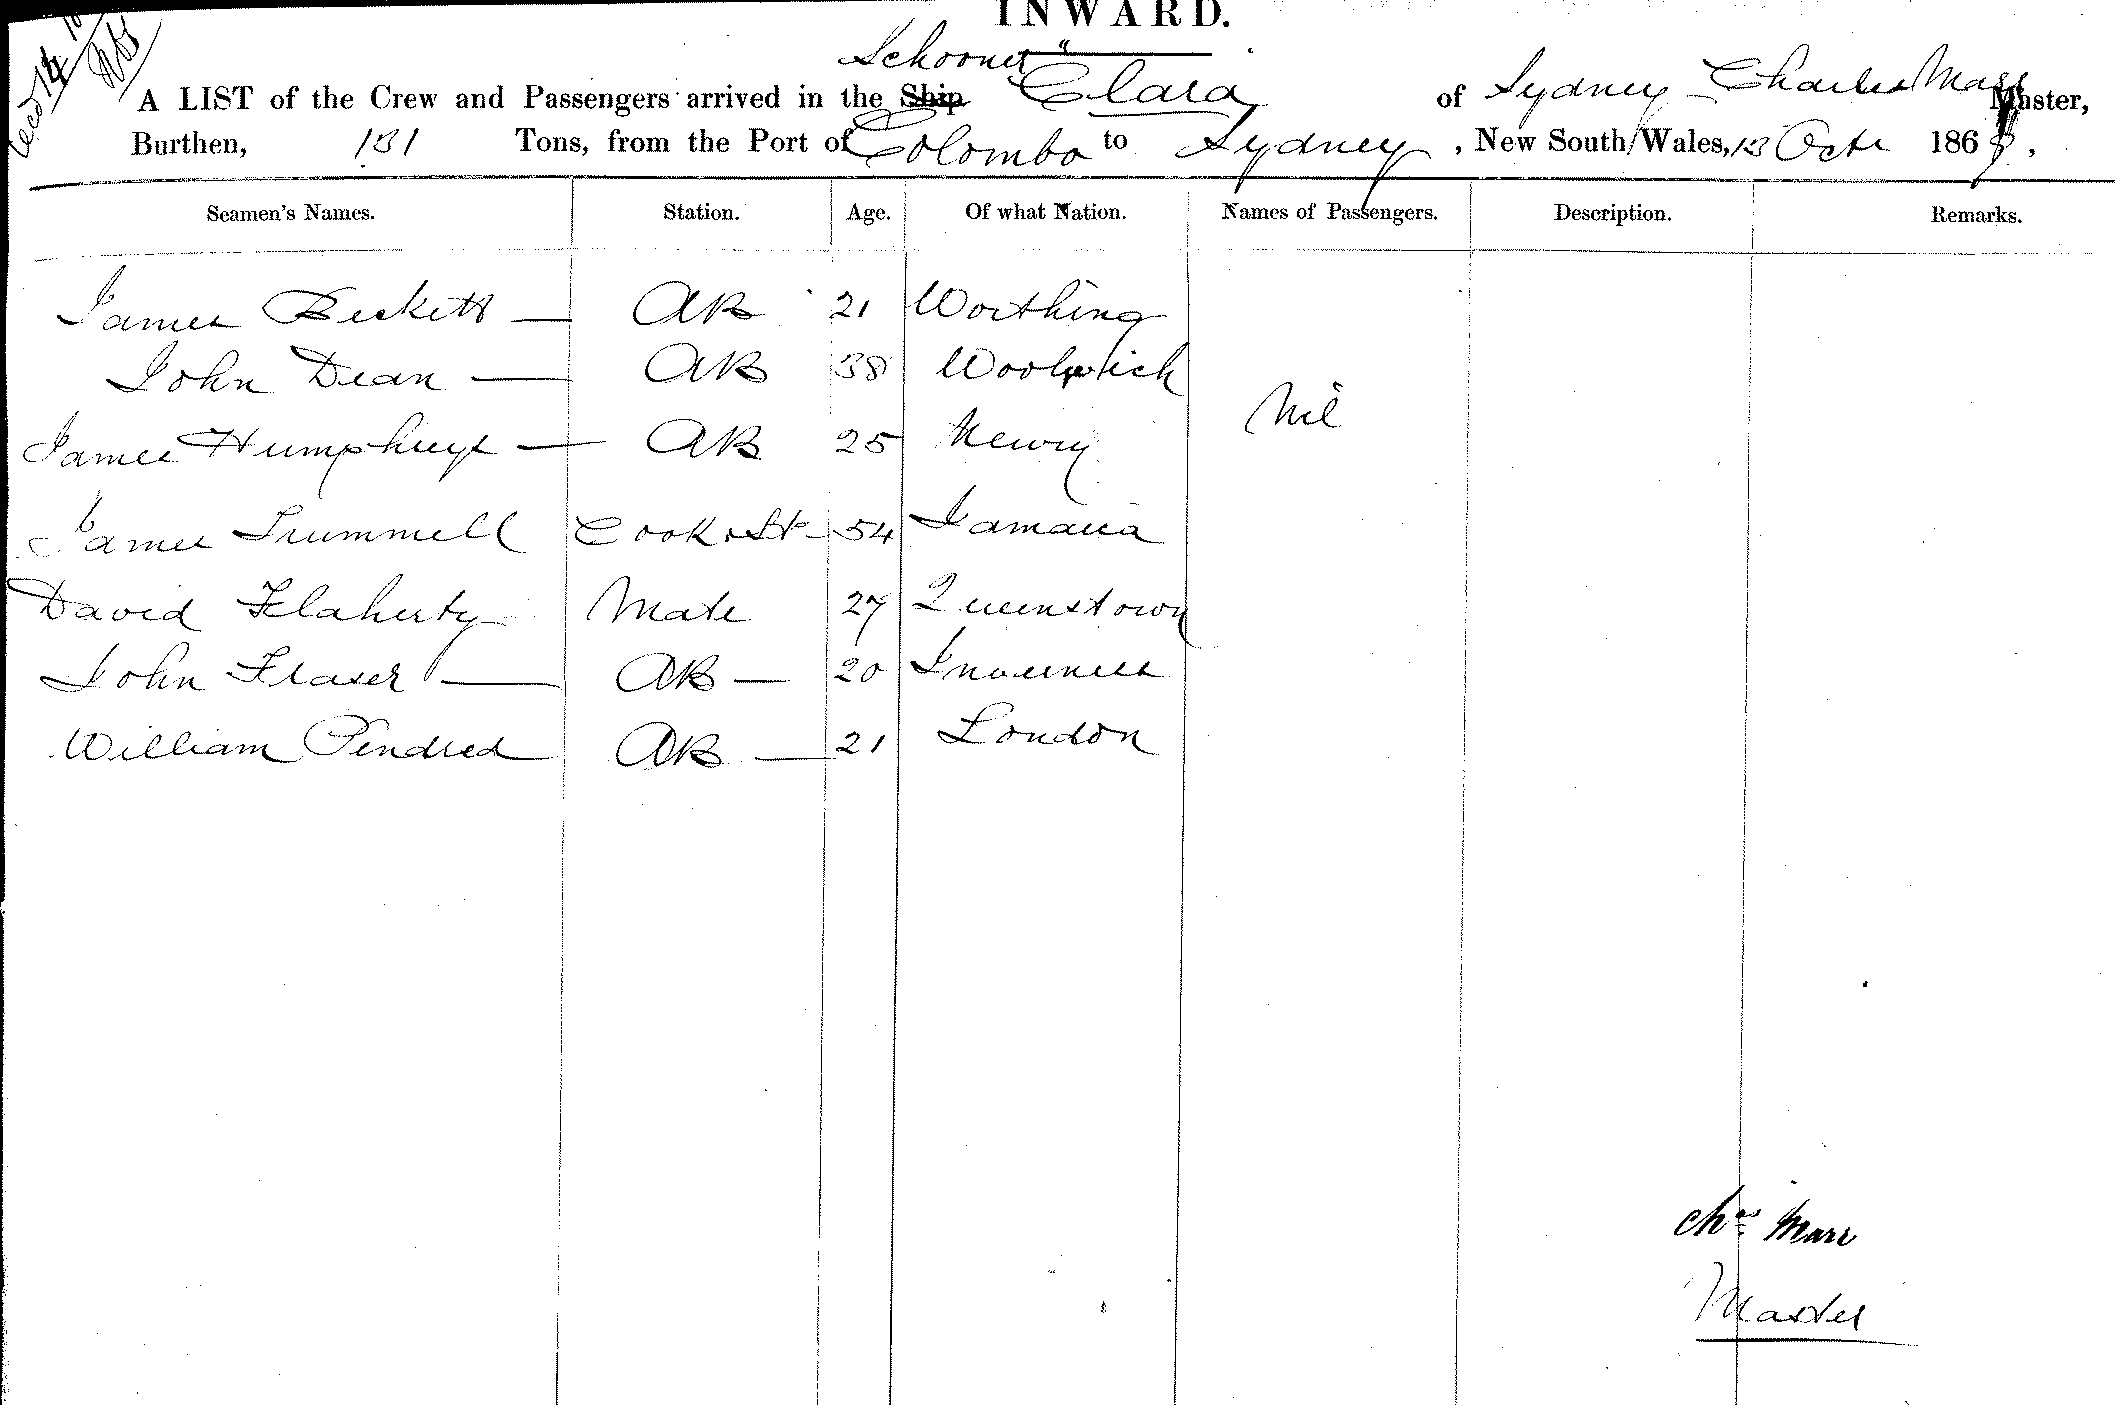 INWARD.
Recd 14
Schooner
A LIST of the Crew and Passengers arrived in the Ship "Clara" of Sydney Charles Marr Master,
Burthen, 131 Tons, from the Port of Colombo to Sydney, New South Wales, 13 Octr 1868,
Seamen's Names. Station. Age. Of what Nation. Names of Passengers. Description. Remarks.
James Beckett — AB 21 Worthing
John Dean — AB 38 Woolwich
Nil
James Humphreys — AB 25 Newry
James Trummell Cook & St — 54 Jamaica
David Flaherty Mate 27 Queenstown
John Fraser — AB — 20 Inverness
William Pendred AB — 21 London
Chas Marr
Master